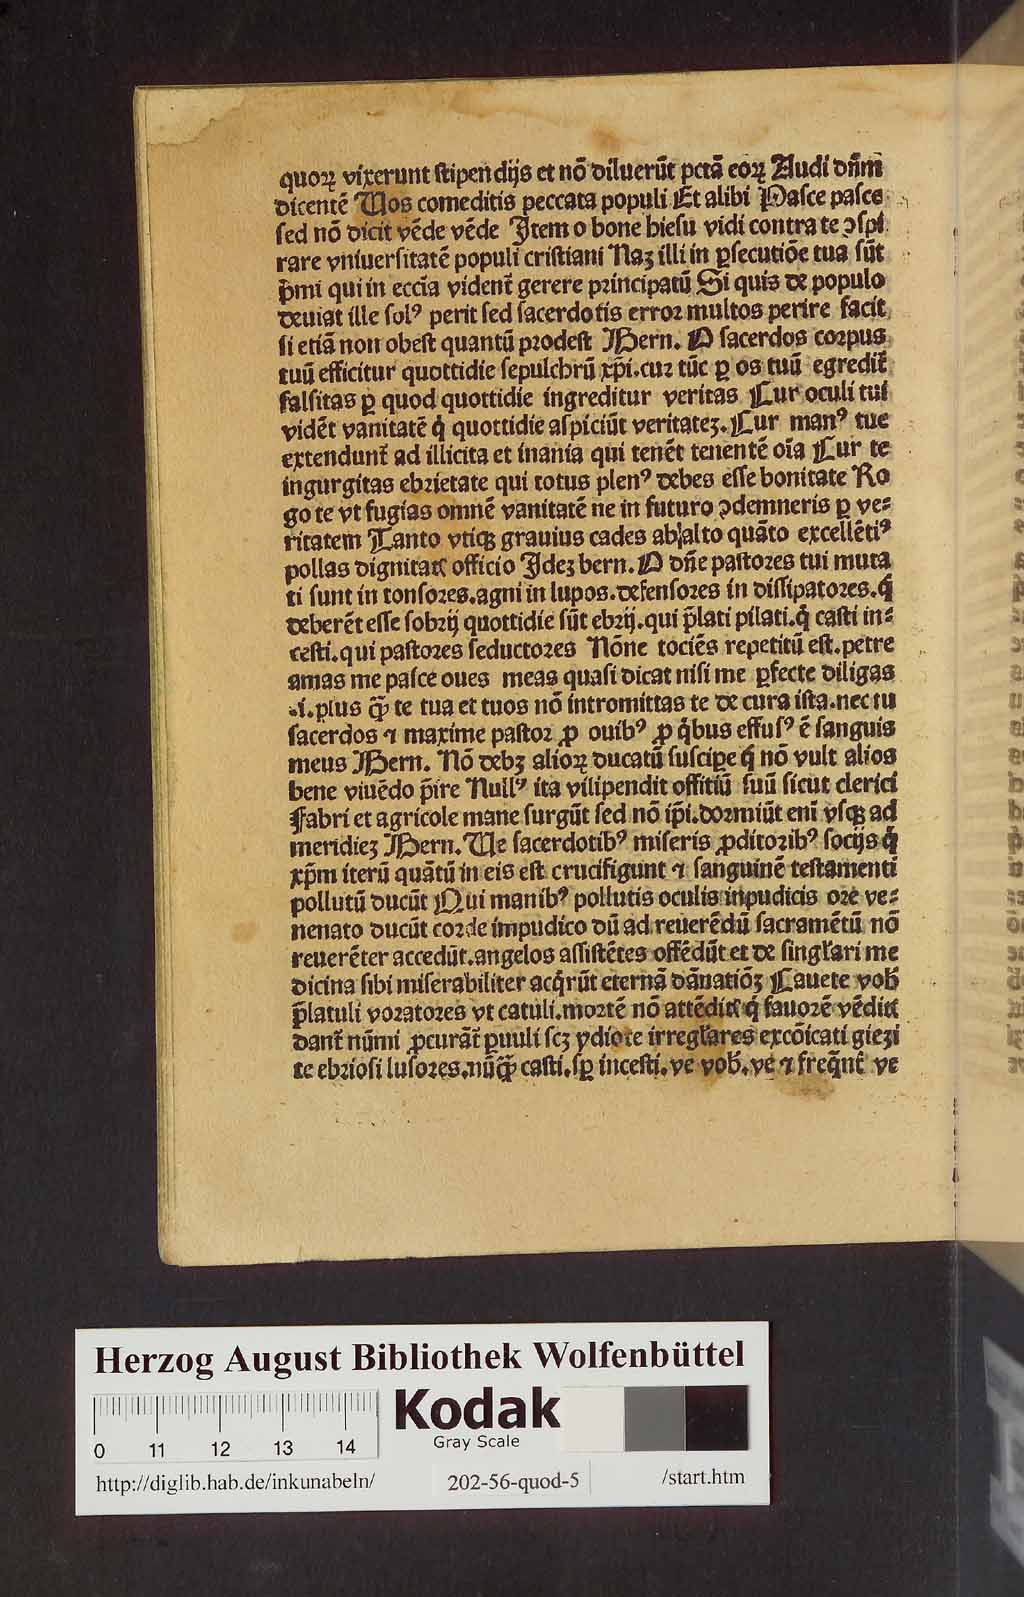 quoꝝ vixerunt ſtipendijs et nō diluerūt pctā eoꝝ Audi dn̄m
dicentē Vos comeditis peccata populi Et alibi Paſce paſce
ſed nō dicit vēde vēde Item o bone hieſu vidi contra te ↄſpi
rare vniuerſitatē populi criſtiani Naʒ illi in ꝑſecutiōe tua ſūt
p̄mi qui in eccīa vident̄ gerere principatū Si quis de populo
deuiat ille ſolꝰ perit ſed ſacerdotis error multos perire facit
ſi etiā non obeſt quantū prodeſt Bern. O ſacerdos corpus
tuū efficitur quottidie ſepulchrū xp̄i.cur tūc ꝑ os tuū egredit̄
falſitas ꝑ quod quottidie ingreditur veritas Cur oculi tui
vidēt vanitatē q̇ quottidie aſpiciūt veritateʒ.Cur manꝰ tue
extendunt̄ ad illicita et inania qui tenēt tenentē oīa Cur te
ingurgitas ebrietate qui totus plenꝰ debes eſſe bonitate Ro
go te vt fugias omnē vanitatē ne in futuro ↄdemneris ꝑ ve⸗
ritatem Tanto vtiqꝫ grauius cades ab alto quāto excellētiꝰ
pollas dignitatꝭ officio Ideʒ bern. O dn̄e paſtores tui muta
ti ſunt in tonſores.agni in lupos.defenſores in diſſipatores.q̇
deberēt eſſe ſobrij quottidie ſūt ebrij.qui p̄lati pilati.q̇ caſti in⸗
ceſti.qui paſtores ſeductores Nōne tociēs repetitū eſt.petre
amas me paſce oues meas quaſi dicat niſi me ꝑfecte diligas
.i.plus qͣ̄ te tua et tuos nō intromittas te de cura iſta.nec tu
ſacerdos ⁊ maxime paſtor ꝓ ouibꝰ ꝓ q̇bus effuſꝰ ē ſanguis
meus Bern. Nō debʒ alioꝝ ducatū ſuſciꝑe q̇ nō vult alios
bene viuēdo p̄ire Nullꝰ ita vilipendit offitiū ſuū ſicut clerici
Fabri et agricole mane ſurgūt ſed nō ip̄i.dormiūt enī vſqꝫ ad
meridieʒ Bern. Ve ſacerdotibꝰ miſeris ꝓditoribꝰ ſocijs q̇
xp̄m iterū quātū in eis eſt crucifigunt ⁊ ſanguinē teſtamenti
pollutū ducūt Qui manibꝰ pollutis oculis inpudicis ore ve⸗
nenato ducūt corde impudico dū ad reuerēdū ſacramētū nō
reuerēter accedūt.angelos aſſiſtētes offēdūt et de ſingl̄ari me
dicina ſibi miſerabiliter acq̇rūt eternā dānatiōʒ Cauete vob̄
p̄latuli voratores vt catuli.mortē nō attēditꝭ q̇ fauorē vēditꝭ
dant̄ nūmi ꝓcurāt̄ ꝑuuli ſcʒ ydiote irregl̄ares excōicati giezi
te ebrioſi luſores.nūqͣ̄ caſti.ſꝑ inceſti.ve vob̄.ve ⁊ freq̄nt̄ ve
Herzog August Bibliothek Wolfenbüttel
0 11 12 13 14
Kodak
Gray Scale
http://diglib.hab.de/inkunabeln/ 202-56-quod-5 /start.htm